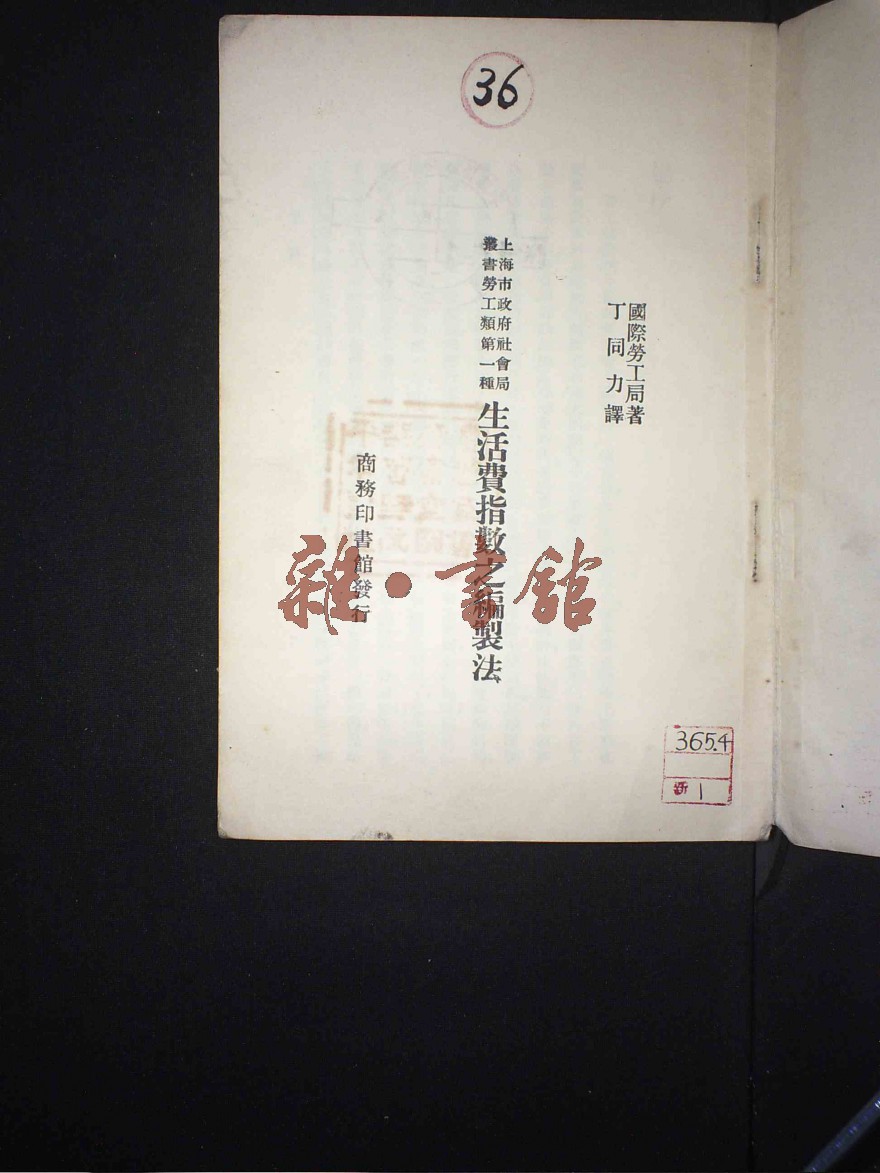 36
國際勞工局著
丁同力譯
上海市政府社會局
叢書勞工類第一種
生活費指數之編製法
商務印書館發行
雜·書館
365.4
1